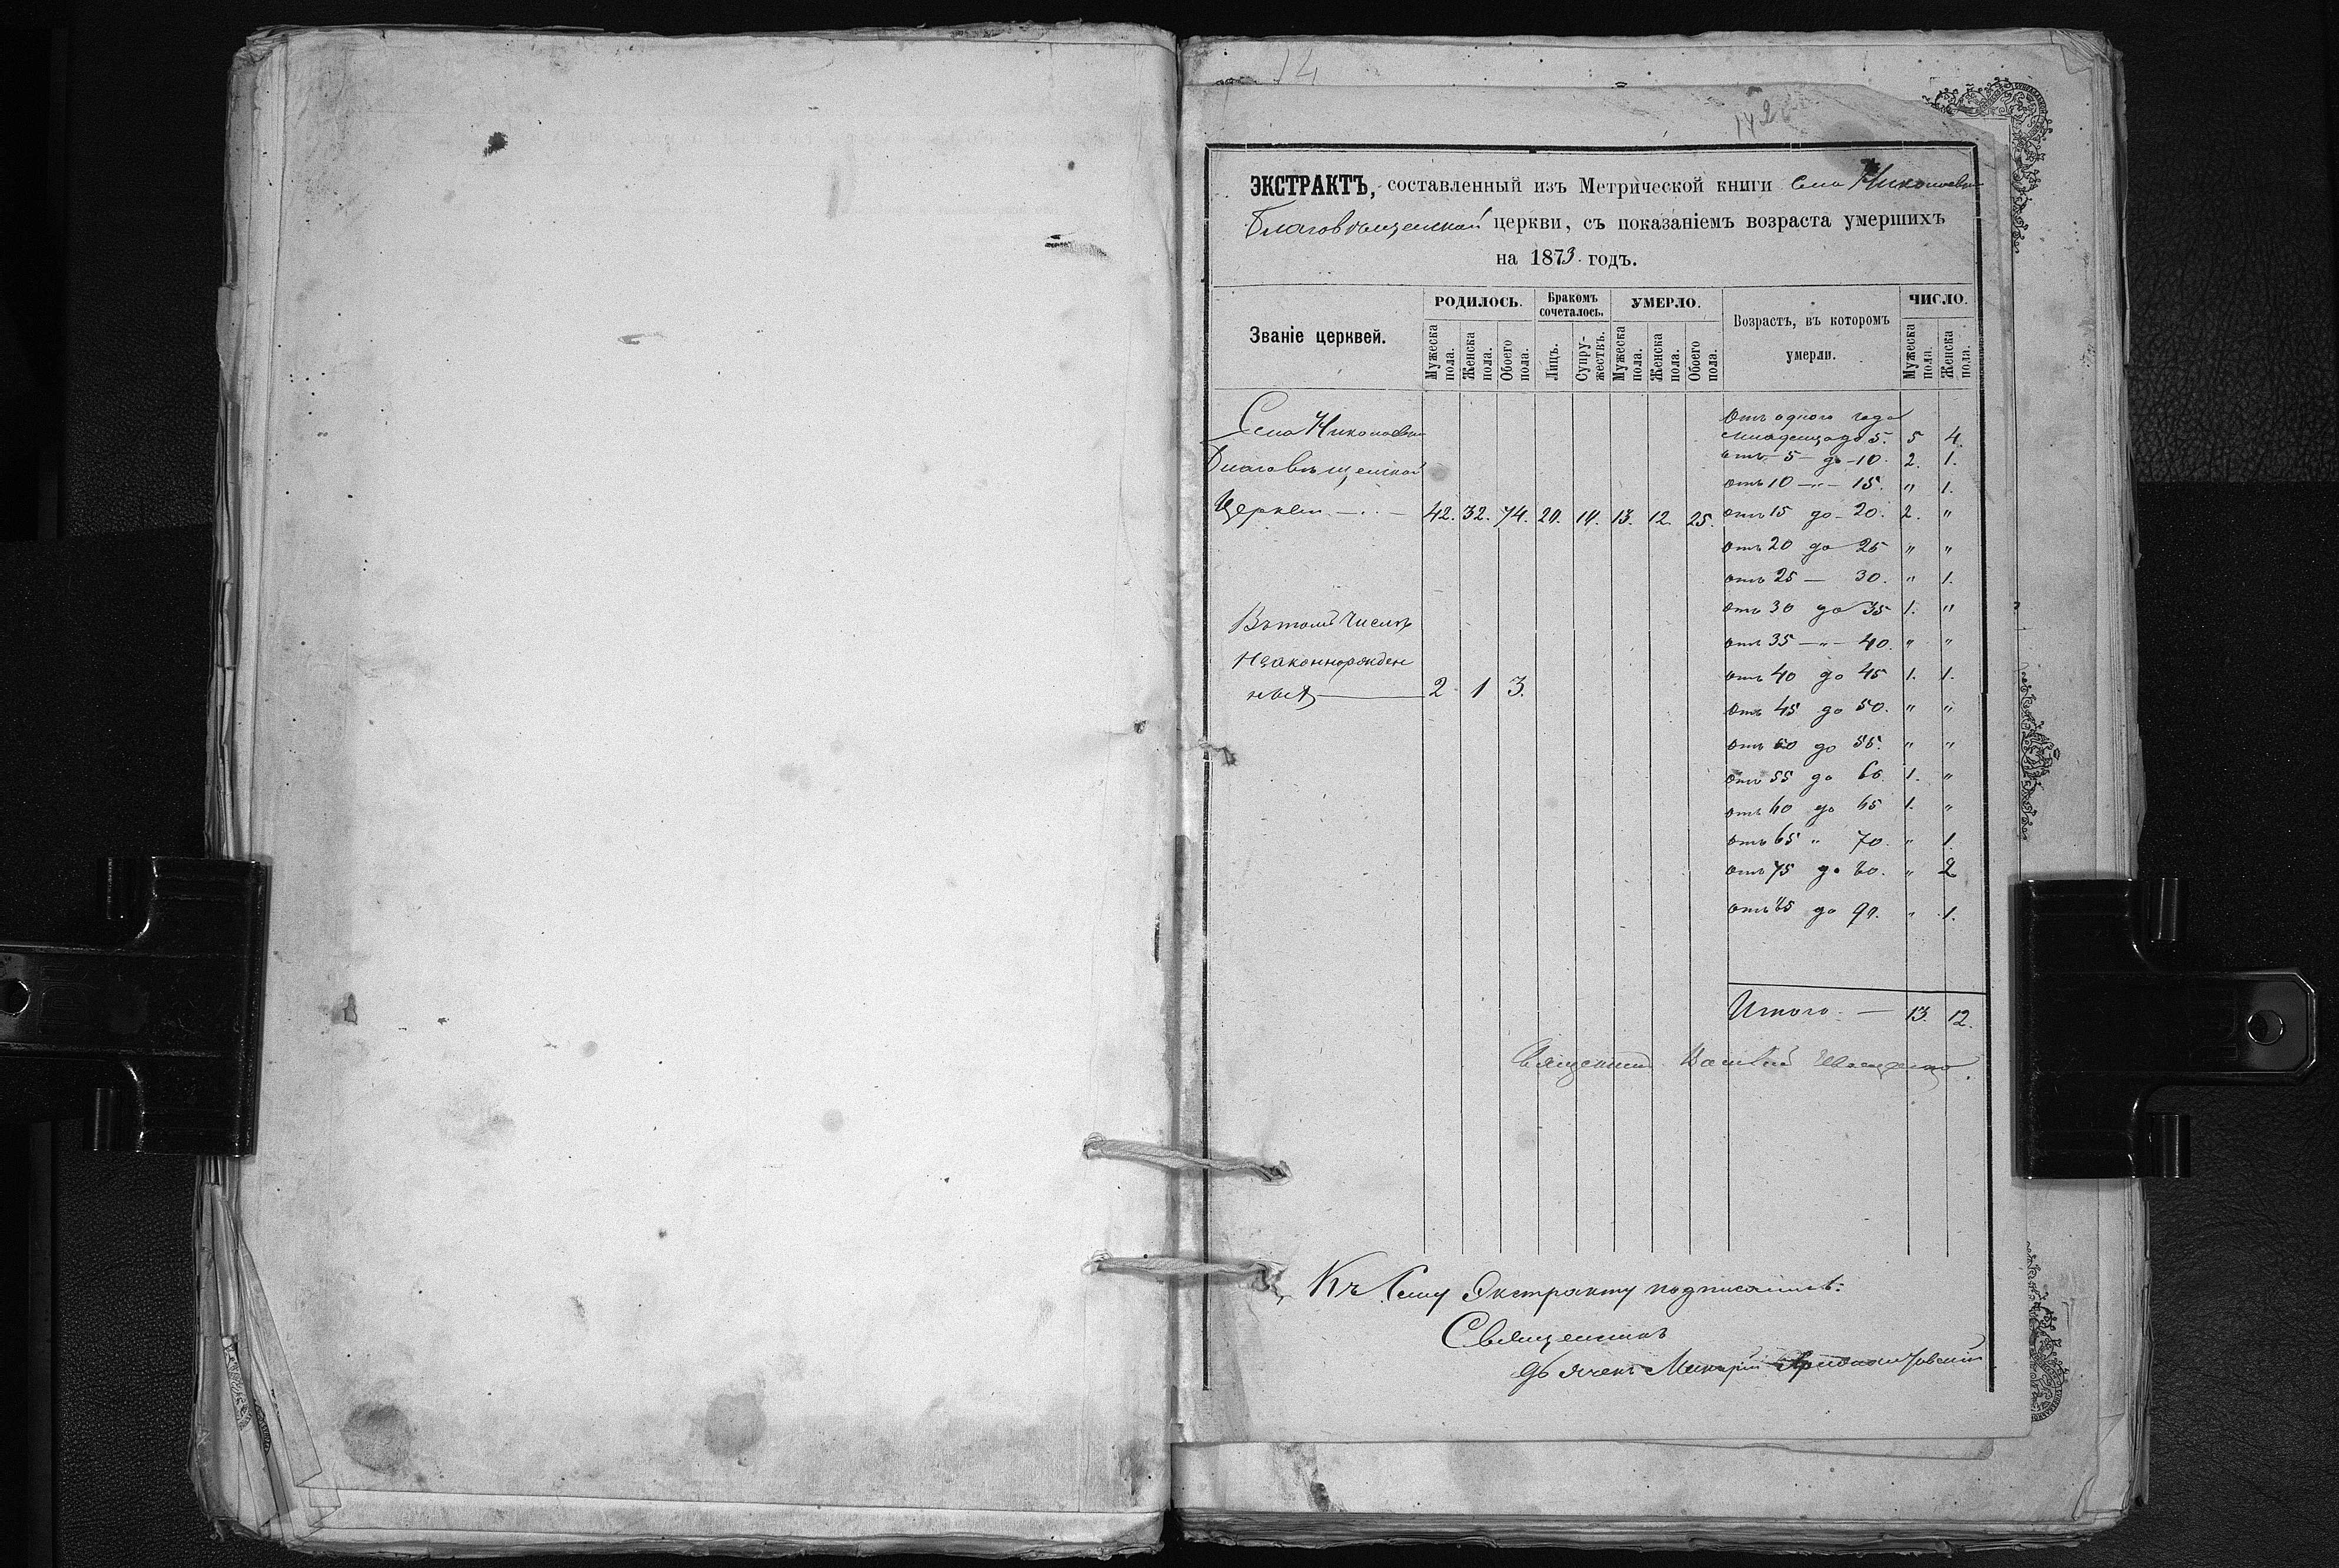 14
ЭКСТРАКТЪ, составленный изъ Метрической книги Села Николаевки
Благовѣщенской церкви, съ показаніемъ возраста умершихъ
на 1873 годъ.
Званіе церквей. РОДИЛОСЬ. Бракомъ сочеталось. УМЕРЛО. Возрастъ, въ которомъ умерли. ЧИСЛО.
Мужеска пола. Женска пола. Обоего пола. Лицъ. Супру-жествъ. Мужеска пола. Женска пола. Обоего пола. Мужеска пола. Женска пола.
Села Николаевки
Благовѣщенской
Церкви — 42. 32. 74. 20. 10. 13. 12. 25.
Въ томъ числѣ
Незаконнорожден
ныя — 2 1 3.
Отъ одного года
младенца до 5. 5 4.
отъ 5 до 10. 2. 1.
отъ 10 — " — 15. " 1.
отъ 15 до 20. 2. "
отъ 20 до 25 " "
отъ 25 — 30. " 1.
отъ 30 до 35 1. "
отъ 35 — " — 40. " "
отъ 40 до 45 1. 1.
отъ 45 до 50. " "
отъ 50 до 55. " "
отъ 55 до 60. 1. "
отъ 60 до 65 1. "
отъ 65 " 70. " 1.
отъ 75 до 80. " 2
отъ 85 до 90. " 1.
Итого. — 13. 12.
Священникъ Василій
Къ сему Экстракту подписались:
Священникъ
Дьячекъ Макарій